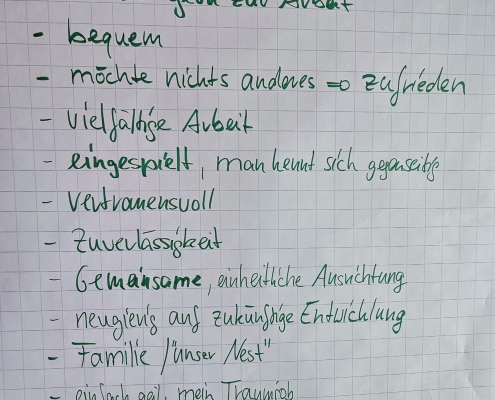 gern zur Arbeit
- bequem
- möchte nichts anderes => zufrieden
- vielfältige Arbeit
- eingespielt, man kennt sich gegenseitig
- vertrauensvoll
- Zuverlässigkeit
- Gemainsame, einheitliche Ausrichtung
- neugierig auf zukünftige Entwicklung
- Familie /"unser Nest"
- einfach geil, mein Traumjob